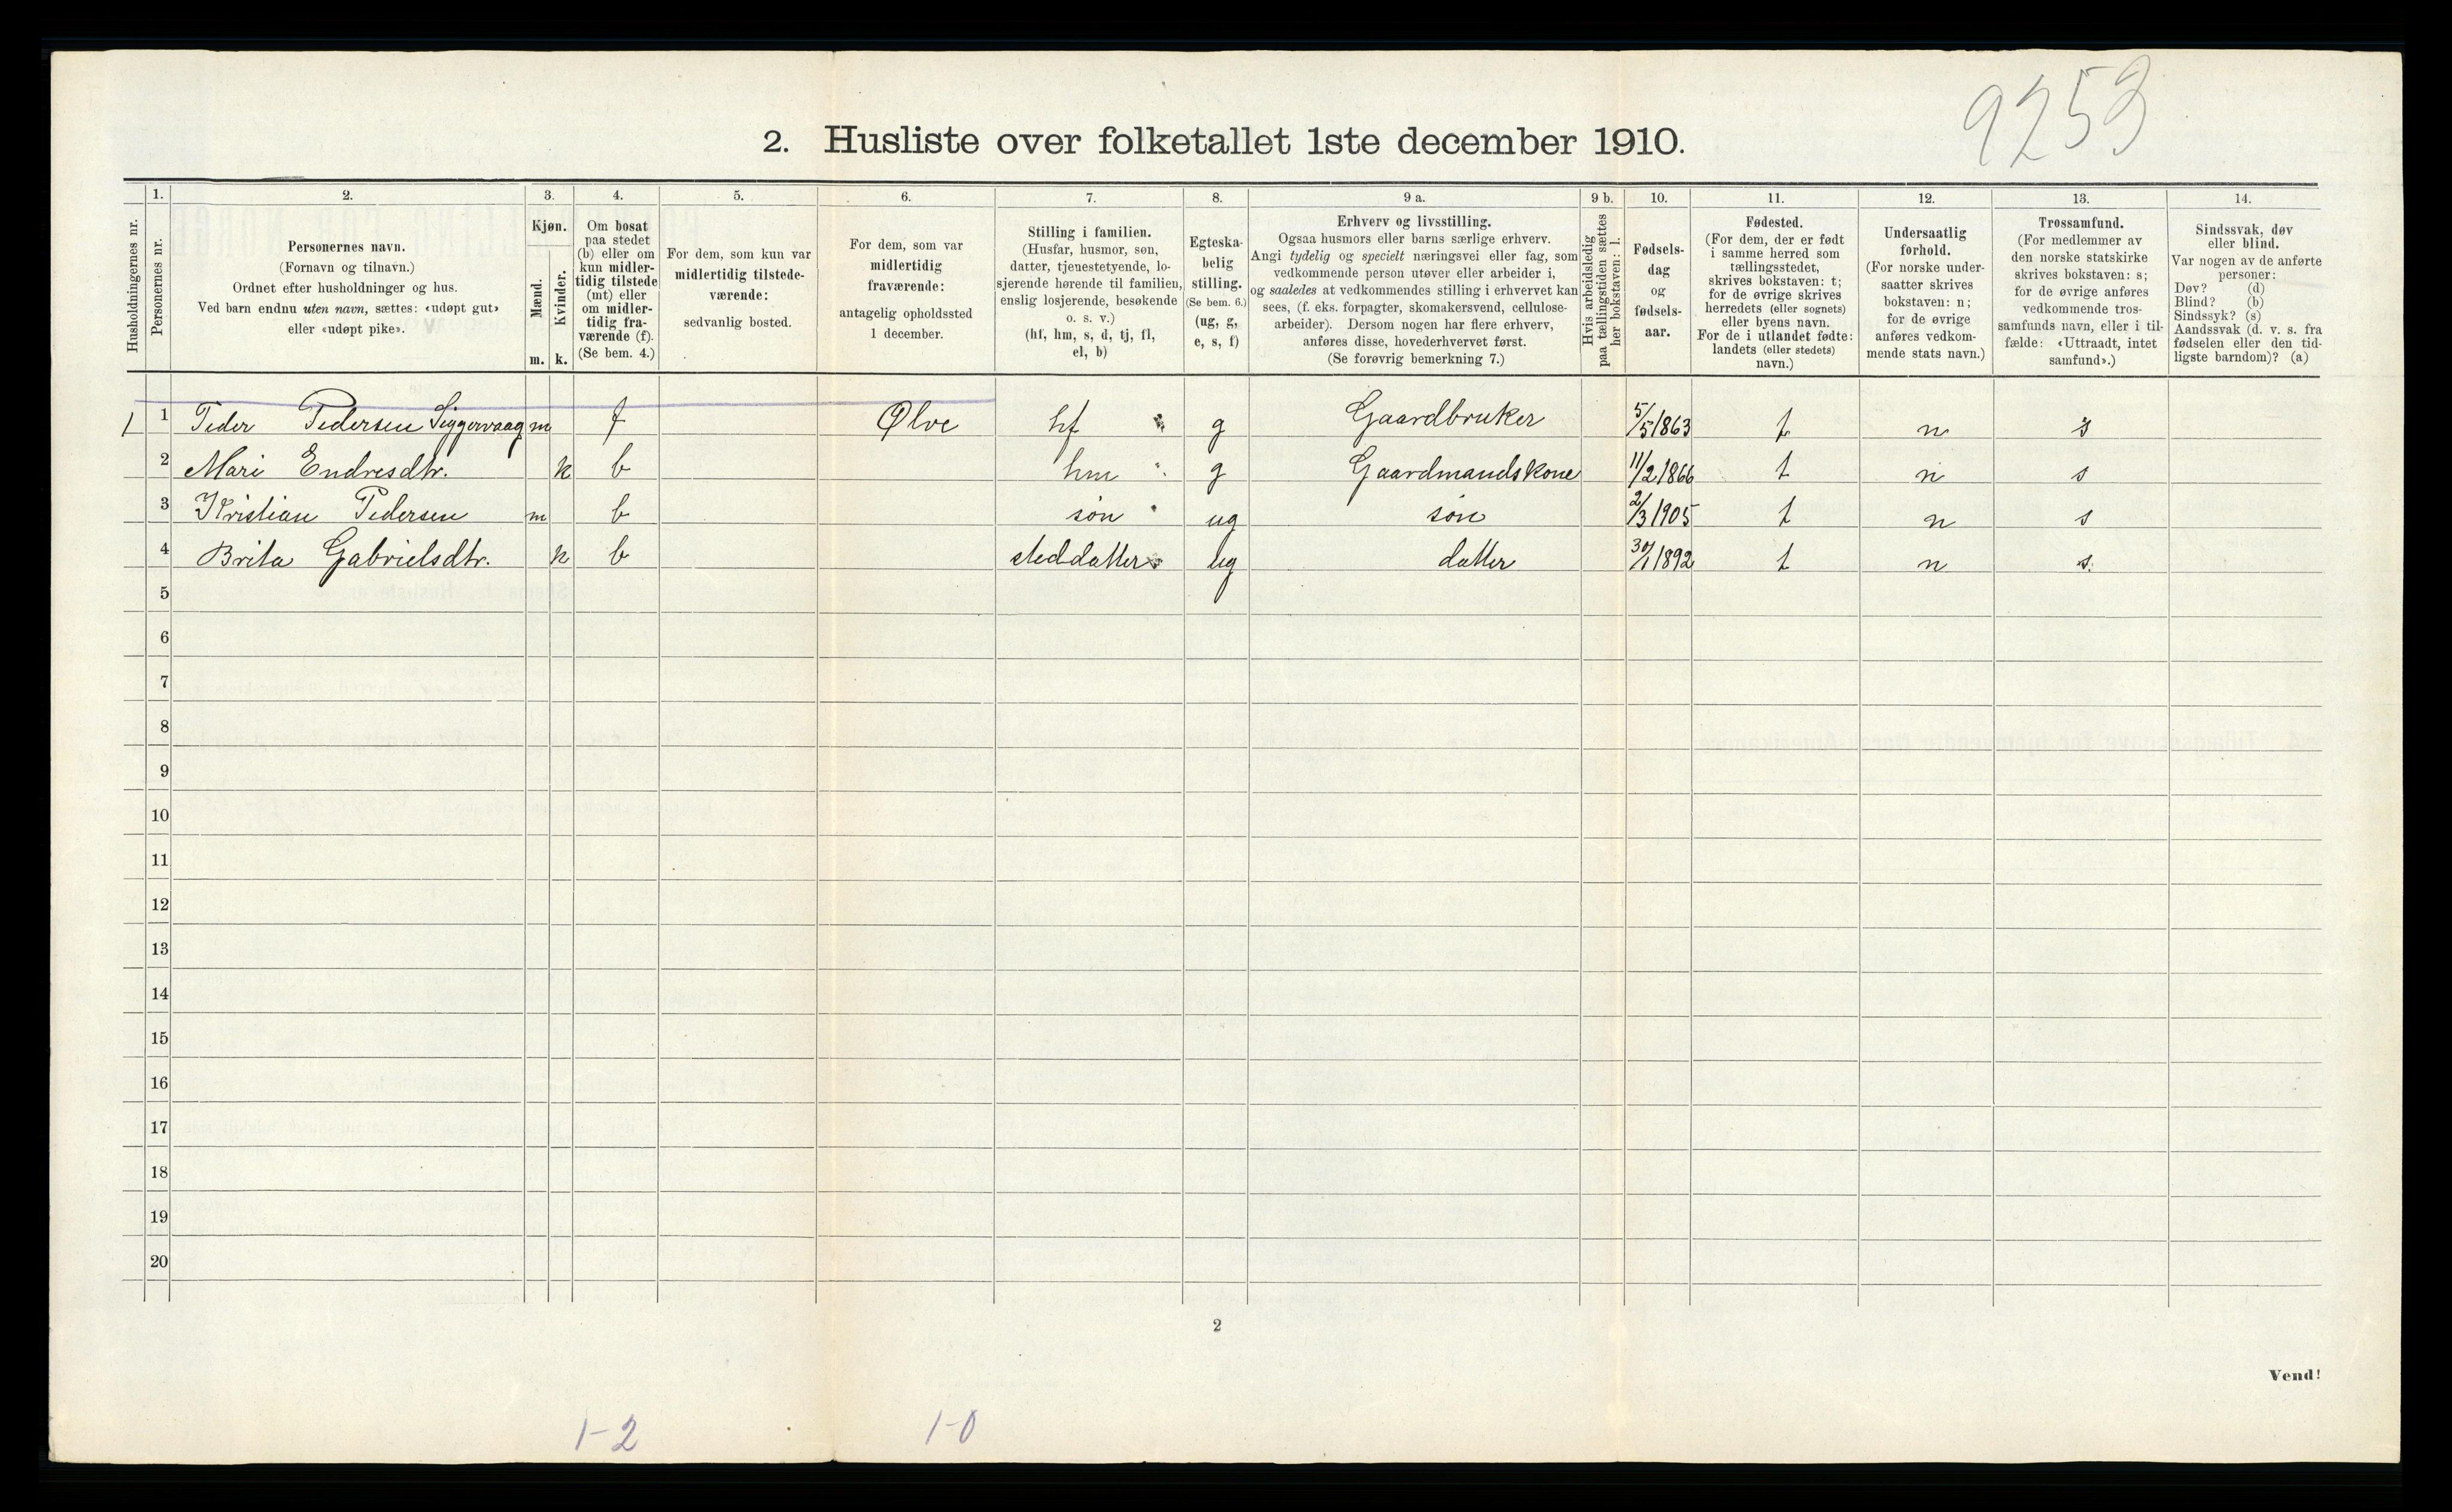 9253
2. Husliste over folketallet 1ste december 1910.
Husholdningernes nr.
1.
Personernes nr.
2.
Personernes navn.
(Fornavn og tilnavn.)
Ordnet efter husholdninger og hus.
Ved barn endnu uten navn, sættes: «udøpt gut»
eller «udøpt pike».
3.
Kjøn.
Mænd.
Kvinder.
m. k.
4.
Om bosat
paa stedet
(b) eller om
kun midler-
tidig tilstede
(mt) eller
om midler-
tidig fra-
værende (f).
(Se bem. 4.)
5.
For dem, som kun var
midlertidig tilstede-
værende:
sedvanlig bosted.
6.
For dem, som var
midlertidig
fraværende:
antagelig opholdssted
1 december.
7.
Stilling i familien.
(Husfar, husmor, søn,
datter, tjenestetyende, lo-
sjerende hørende til familien,
enslig losjerende, besøkende
o. s. v.)
(hf, hm, s, d, tj, fl,
el, b)
8.
Egteska-
belig
stilling.
(Se bem. 6.)
(ug, g,
e, s, f)
9 a.
Erhverv og livsstilling.
Ogsaa husmors eller barns særlige erhverv.
Angi tydelig og specielt næringsvei eller fag, som
vedkommende person utøver eller arbeider i,
og saaledes at vedkommendes stilling i erhvervet kan
sees, (f. eks. forpagter, skomakersvend, cellulose-
arbeider). Dersom nogen har flere erhverv,
anføres disse, hovederhvervet først.
(Se forøvrig bemerkning 7.)
9 b.
Hvis arbeidsledig
paa tællingstiden sættes
her bokstaven: l.
10.
Fødsels-
dag
og
fødsels-
aar.
11.
Fødested.
(For dem, der er født
i samme herred som
tællingsstedet,
skrives bokstaven: t;
for de øvrige skrives
herredets (eller sognets)
eller byens navn.
For de i utlandet fødte:
landets (eller stedets)
navn.)
12.
Undersaatlig
forhold.
(For norske under-
saatter skrives
bokstaven: n;
for de øvrige
anføres vedkom-
mende stats navn.)
13.
Trossamfund.
(For medlemmer av
den norske statskirke
skrives bokstaven: s;
for de øvrige anføres
vedkommende tros-
samfunds navn, eller i til-
fælde: «Uttraadt, intet
samfund».)
14.
Sindssvak, døv
eller blind.
Var nogen av de anførte
personer:
Døv? (d)
Blind? (b)
Sindssyk? (s)
Aandssvak (d. v. s. fra
fødselen eller den tid-
ligste barndom)? (a)
1 1 Peder Pedersen Siggervaag m f Ølve hf g Gaardbruker 5/5 1863 t n s
2 Mari Endresdtr. k b hm g Gaardmandskone 11/2 1866 t n s
3 Kristian Pedersen m b søn ug søn 2/3 1905 t n s
4 Brita Gabrielsdtr. k b steddatter ug datter 30/1 1892 t n s.
5
6
7
8
9
10
11
12
13
14
15
16
17
18
19
20
2
Vend!
1-2 1-0